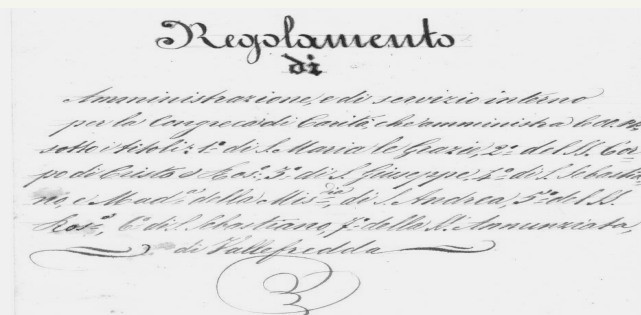 Regolamento
di
Amministrazione, e di servizio interno
per la Congreca di Carità, che amministra le OO. PP.
sotto i titoli: 1º di S. Maria le Grazie, 2º del S.S. Cor-
po di Cristo e Ros.º 3º di S. Giuseppe, 4º di S. Sebastia-
no, e Mad.ª della Mis.dia di S. Andrea, 5º del S.S.
Ros.º, 6º di S. Sebastiano, 7º della S.S. Annunziata,
di Vallefredda